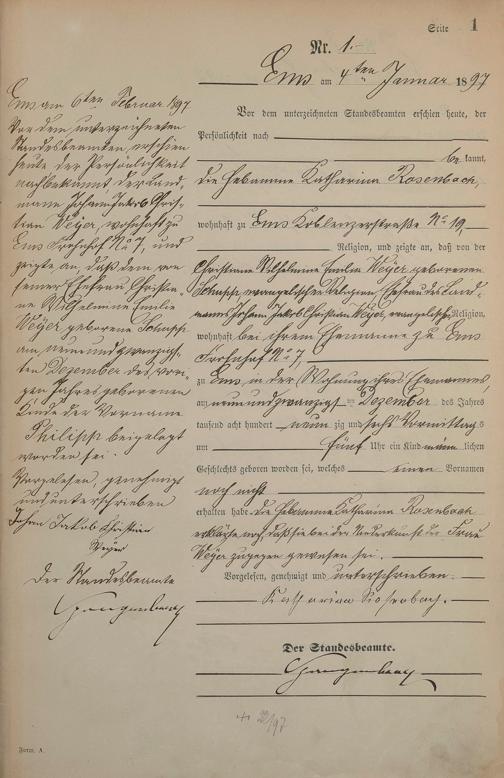 Seite 1
Nr. 1.
Ems am 4ten Januar 1897
Vor dem unterzeichneten Standesbeamten erschien heute, der
Persönlichkeit nach
be kannt,
die Hebamme Katharina Rosenbach,
wohnhaft zu Ems Koblenzerstraße No 19,
Religion, und zeigte an, daß von der
Christiane Wilhelmine Emilie Weyer geborenen
evangelischer Religion, Ehefrau des Land-
manns Johann Jakob Christian Weyer, evangelischer Religion,
wohnhaft bei ihrem Ehemanne zu Ems
Fronhof No 7,
zu Ems, in der Wohnung ihres Ehemannes,
am neun und zwanzigsten Dezember des Jahres
tausend acht hundert neun zig und sechs Vormittags
um fünf Uhr ein Kind männ lichen
Geschlechts geboren worden sei, welches einen Vornamen
noch nicht
erhalten habe. Die Hebamme Katharina Rosenbach
erklärte noch, daß sie bei der Niederkunft der Frau
Weyer zugegen gewesen sei.
Vorgelesen, genehmigt und unterschrieben
Katharina Rosenbach.
Der Standesbeamte.
Ems am 6ten Februar 1897
Vor dem unterzeichneten
Standesbeamten, erschien
heute der Persönlichkeit
nach bekannt, der Land-
mann Johann Jakob Chris-
tian Weyer, wohnhaft zu
Ems Fronhof No 7, und
zeigte an, daß dem von
seiner Ehefrau Christia-
ne Wilhelmine Emilie
Weyer geborene
am neun und zwanzig-
sten Dezember des vori-
gen Jahres geborenen
Kinde der Vorname
Philipp beigelegt
worden sei.
Vorgelesen, genehmigt
und unterschrieben
Johann Jakob Christian
Weyer
Der Standesbeamte
Form. A.